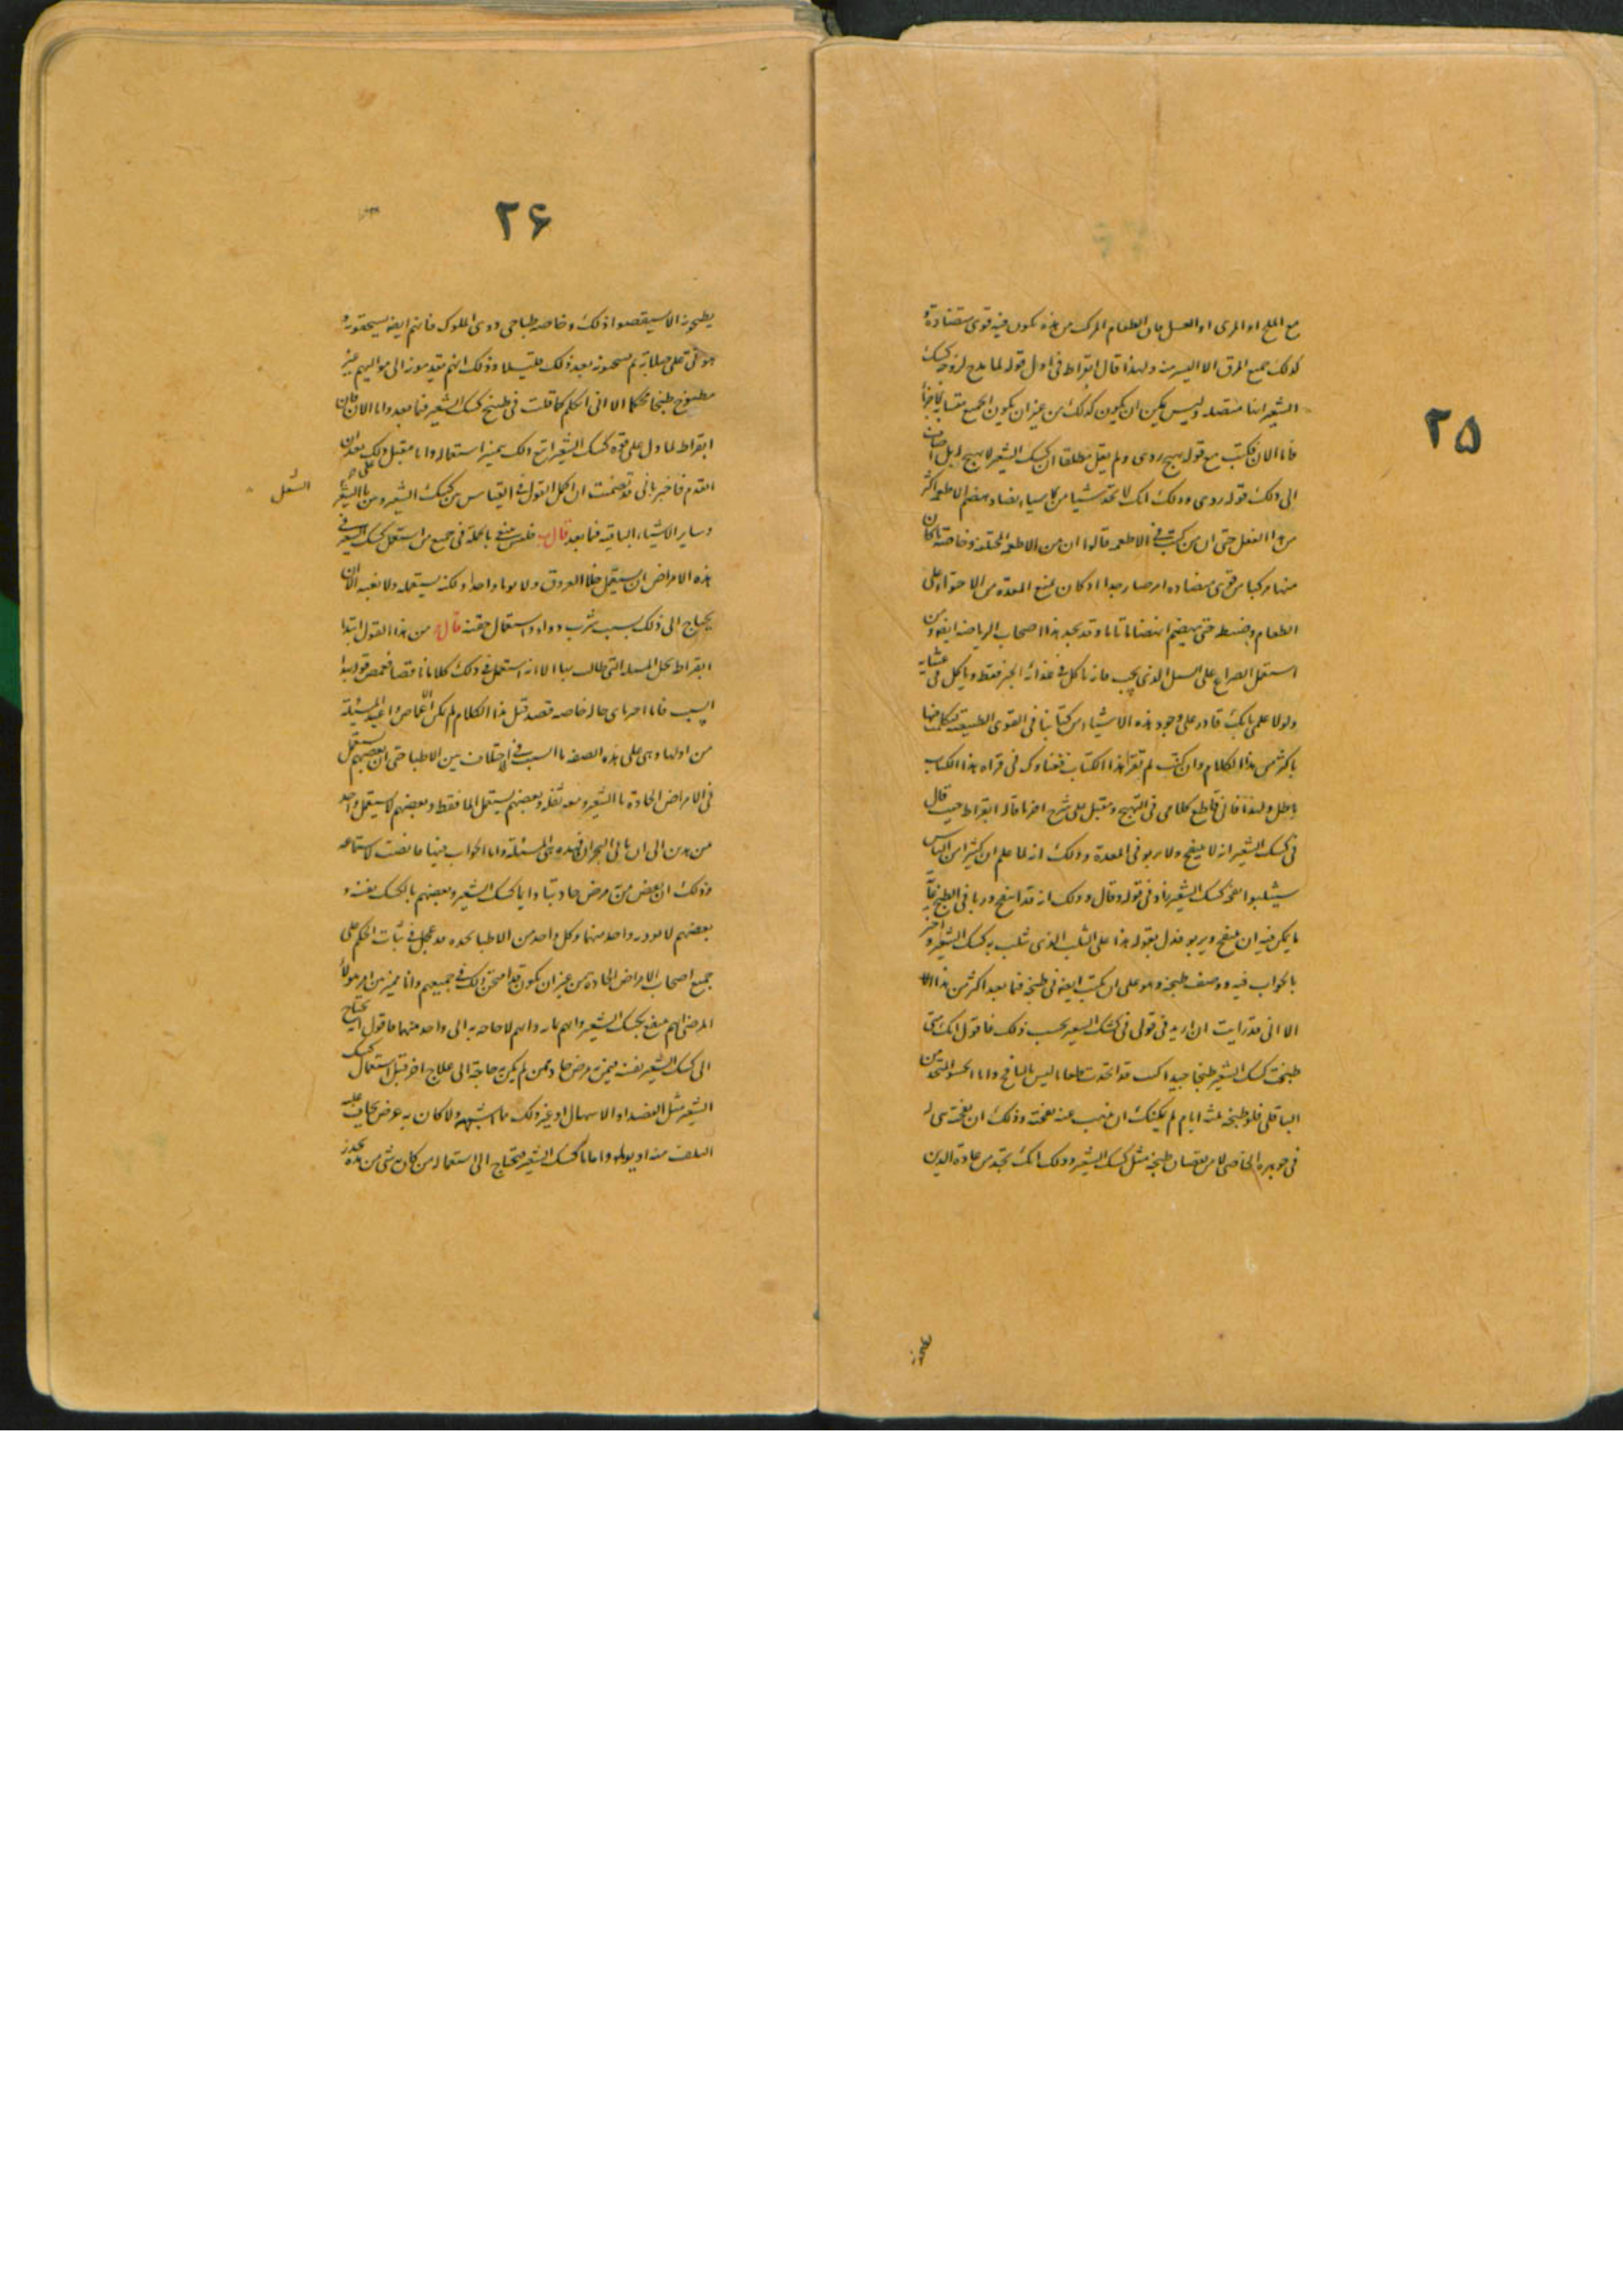 ۲۵
مع الملح او المرى او العسل فان الطعام المركب من هذه تكون فيه قوى متضادة و
كذلك جميع المرق الا اليسير منه ولهذا قال ابقراط فى اول قوله لما مدح لزوجة كشك
الشعير انها متصلة وليس يمكن ان يكون كذلك من غير ان يكون الجميع متشابه الاجزاء
فاما الان فكتب مع قوله يهيج ردى ولم يقل مطلقا ان كشك الشعير لا يهيج بل اضاف
الى ذلك قوله ردى وذلك انك لا تجد شيئا من الاشياء يضاد هضم الاطعمة اكثر
من هذا الفعل حتى ان من كتب فى الاطعمه قالوا ان من الاطعمة المختلفة وخاصة ما كان
منها مركبا من قوى متضاده امر ضار جدا اذ كان يمنع المعدة من الاحتواء على
الطعام وضبطه حتى ينهضم انهضاما تاما وقد نجد هذا اصحاب الرياضة ايضا ومن
استعمل الصراع على السبيل الذى يجب فانه ياكل فى غذائه الخبز فقط وياكل فى عشايه
ولولا علمى بانك قادر على وجود هذه الاشياء من كتابنا فى القوى الطبيعية لتكلمت فيها
باكثر من هذا الكلام وان كنت لم تقرا هذا الكتاب فعناؤك فى قراة هذا الكتاب
باطل ولهذا فانى قاطع كلامى فى التهيج ومقبل على شرح اخر ما قاله ابقراط حيث قال
فى كشك الشعير انه لا ينتفخ ولا يربو فى المعدة وذلك انه لما علم ان كثيرا من الناس
سيثلبوا نفخة كشك الشعير زاد فى قوله وقال وذلك انه قد انتفخ وربا فى الطبخ غاية
ما يمكن فيه ان ينتفخ ويربو فدل بقوله هذا على الثلب الذى ثلب به كشك الشعير واخبر
بالجواب فيه ووصف طبخه وهو على ان يكتب ايضا فى طبخه فيما بعد اكثر من هذا الا
الا انى قد رايت ان ازيد فى قولى فى كشك الشعير بحسب ذلك فاقول انك متى
طبخت كشك الشعير طبخا جيدا كنت قد اتخذت طعاما ليس بالنافخ واما الحسو المتخذ من
الباقلى فلو طبخته ثلثة ايام لم يمكنك ان يذهب عنه نفخته وذلك ان نفخته هى له
فى جوهره الخاصى لا من نقصان طبخه مثل كشك الشعير وذلك انك تجد من عادة الذين
۲۶
يطبخونه الا يستقصوا ذلك وخاصة طباخى ذوى الملوك فانهم ايضا يسحقونه و
هو باق على صلابته ثم يسخنونه بعد ذلك قليلا وذلك انهم يقدمونه الى مواليهم غير
مطبوخ طبخا محكما الا انى اتكلم كما قلت فى طبخ كشك الشعير فيما بعد واما الان فان
ابقراط لما دل على قوة كشك الشعير اتبع ذلك بميز استعماله وانا مقبل على ذلك بعد ان
اتقدم فاخبر بانى قد تضمنت ان اكمل القول فى القياس بين كشك الشعير وبين ماء الشعير
وساير الاشياء الباقية فيما بعد قال فليس ينبغى بالجملة فى جميع من استعمل كشك الشعير فى
هذه الامراض ان يستعمل خلا العروق ولا يوما واحدا ولكنه يستعمله ولا يغبه الا ان
يحتاج الى ذلك بسبب شرب دواء او استعمال حقنة قال من هذا القول ابتدا
ابقراط بحل المسئلة التى طالب بها الا انه استعمل فى ذلك كلاما ناقصا فغمض قوله بهذا
السبب فانا اخر باى حال خاصه قصد قبل هذا الكلام
من اولها وهى على هذه الصفة ما السبب فى اختلاف بين الاطبا حتى ان بعضهم يستعمل
فى الامراض الحادة ماء الشعير ومعه ثفله وبعضهم يستعمل الماء فقط وبعضهم لا يستعمل واحدا
من هذين الى ان ياتى البحران فهذه هى المسئلة واما الجواب فيها فانصت لاستماعه
وذلك ان بعض من مرض حاد يتاذى بكشك الشعير وبعضهم بالكشك ينتفع و
بعضهم لا يضره واحد منهما وكل واحد من الاطبا نجده قد عجل فى ثبات الحكم على
جميع اصحاب الامراض الحاده من غير ان يكون قد امتحن ذلك فى جميعهم وانا مميز بين امر هولاء
المرضى ايهم ينتفع بكشك الشعير وايهم بمائه وايهم لا حاجة به الى واحد منهما فاقول انه يحتاج
الى كشك الشعير نفسه من به مرض حاد ممن لم يكن به حاجة الى علاج اخر قبل استعمال كشك
الشعير مثل الفصد او الاسهال او غير ذلك مما اشبهه ولا كان به عرض يخاف عليه
التلف منه او يولم واما ماء كشك الشعير فيحتاج الى استعماله من كان به شى من هذه
الثفل